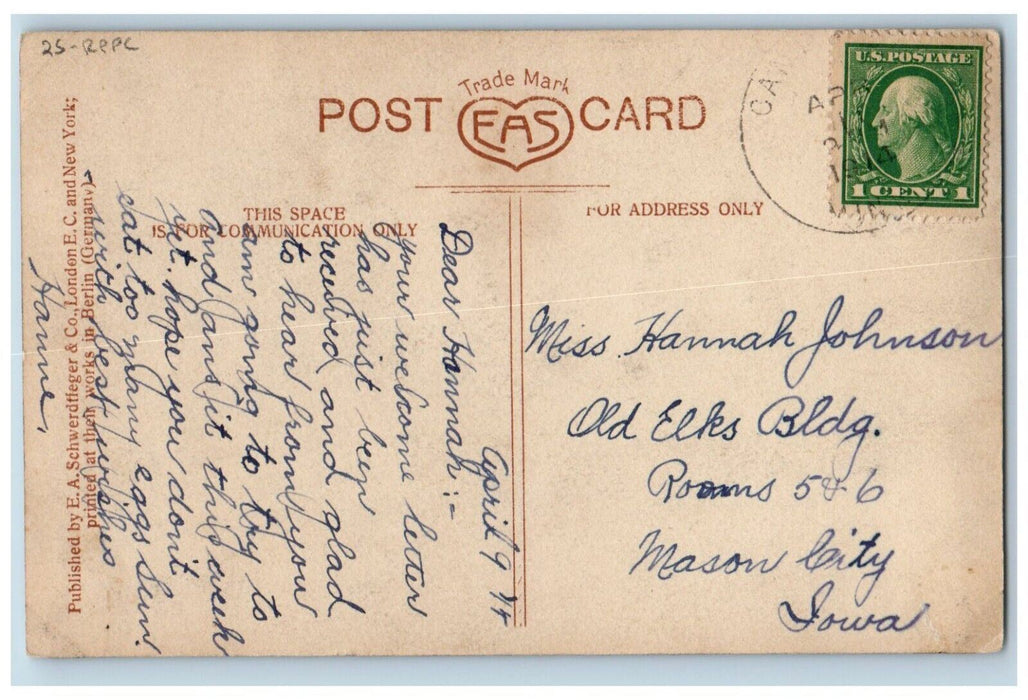 25-RPPC
Trade Mark
POST CARD
EAS
THIS SPACE
IS FOR COMMUNICATION ONLY
FOR ADDRESS ONLY
U.S. POSTAGE
1 CENT 1
CAN
APR
PM
1914
Published by E. A. Schwerdtfeger & Co., London E. C. and New York;
printed at their works in Berlin (Germany)
April 9 '14
Dear Hannah:-
your welcome letter
has just been
received and glad
to hear from you
am going to try to
and ans it this week
yet. hope you don't
eat too many eggs Sun.
with best wishes
Hanne,
Miss. Hannah Johnson
Old Elks Bldg.
Rooms 5 & 6
Mason City
Iowa